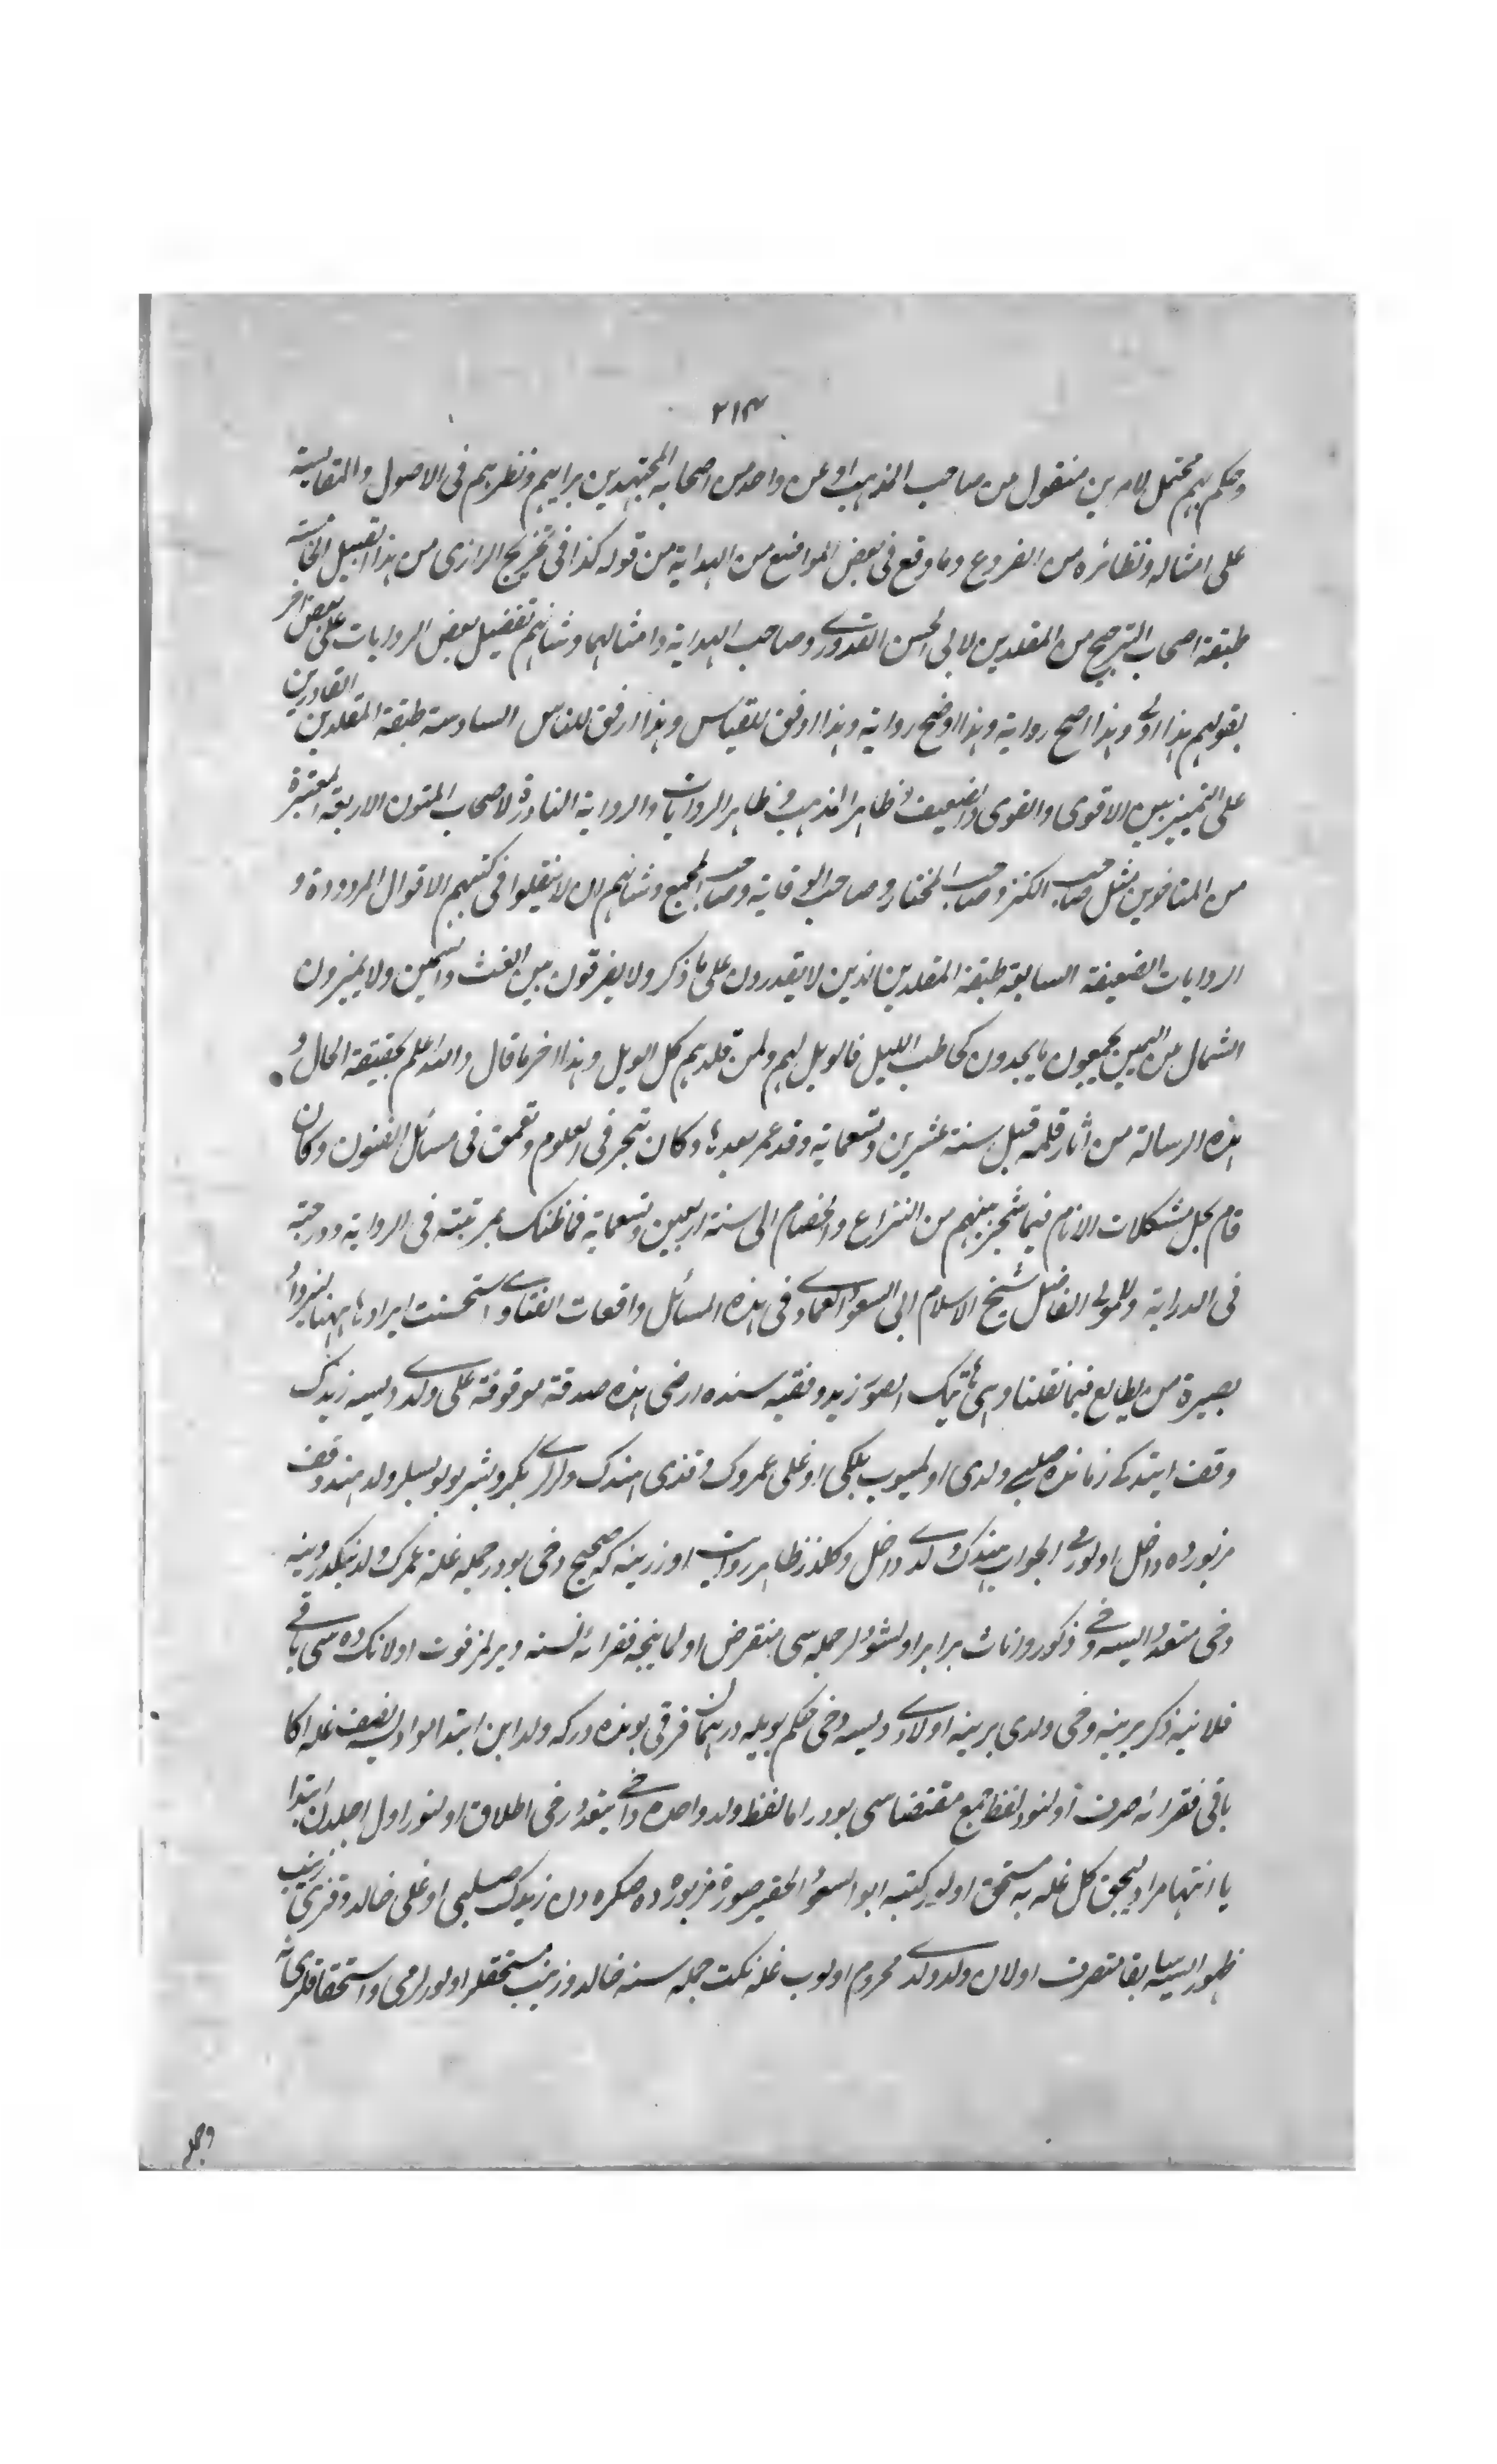 ٢١٣
وحكم مبهم محتمل لامرين منقول من صاحب المذهب او عن واحد من اصحابه المجتهدين برايهم ونظرهم فى الاصول والمقايسة
على امثاله ونظائره من الفروع وما وقع فى بعض المواضع من الهداية من قوله كذا فى تخريج الرازى من هذا القبيل الخامسة
طبقة اصحاب الترجيح من المقلدين كابى الحسن القدورى وصاحب الهداية وامثالهما وشانهم تفضيل بعض الروايات على بعض اخر
بقولهم هذا اولى وهذا اصح رواية وهذا اوضح رواية وهذا اوفق للقياس وهذا ارفق للناس السادسة طبقة المقلدين القادرين
على التمييز بين الاقوى والقوى والضعيف وظاهر المذهب وظاهر الروايات والرواية النادرة كاصحاب المتون الاربعة المعتبرة
من المتاخرين مثل صاحب الكنز وصاحب المختار وصاحب الوقاية وصاحب المجمع وشانهم ان لا ينقلوا فى كتبهم الاقوال المردودة و
الروايات الضعيفة السابعة طبقة المقلدين الذين لا يقدرون على ما ذكر ولا يفرقون بين الغث والسمين ولا يميزون
الشمال من اليمين يجمعون ما يجدون كحاطب الليل فالويل لهم ولمن قلدهم كل الويل وهذا اخر ما قال والله اعلم بحقيقة الحال و
هذه الرسالة من اثار قلمه قبل سنة عشرين وتسعماية وقد عمر بعدها وكان تبحر فى العلوم وتعمق فى مسائل الفنون وكان
قام بحل مشكلات الانام فيما شجر بينهم من النزاع والخصام الى سنة اربعين وتسعماية فما ظنك بمرتبته فى الرواية ودرجته
فى الدراية وللمولى الفاضل شيخ الاسلام ابى السعود العمادى فى هذه المسائل واقعات الفتاوى استحسنت ايرادها ههنا ليزداد
بصيرة من يطالع فيما نقلنا وهى هاتيك الصور زيد وقفيه سنده ارضى هذه صدقة موقوفة على ولدى ديسه زيدك
وقف ايتدكى زمانده صلبى ولدى اولميوب بلكى اوغلى عمروك وقزى هندك ولدلرى بكر وبشر بولنسلر ولد هند وقف
مزبوره داخل اولورمى الجواب هندك ولدى داخل دكلدر ظاهر روايت اوزرينه كه صحيح دخى بودر جمله غله عمرك ولدينكدر وينه
دخى متعدد ايسه دخى ذكور واناث برابر اولشورلر جمله سى منقرض اولماينجه فقرائه نسنه ويرلمز فوت اولانك ده سى باقى
فلانيه ذكر يرينه دخى ولدى يرينه اولادى ديسه دخى حكم بويله در همان فرقى بونده در كه ولد ابن ابتدا بواد ايسه نصف غله اكا
باقى فقرائه صرف اولنور لفظ جمع مقتضاسى بودر اما لفظ ولد واحده دخى متعدده دخى اطلاق اولنور اول اجلدن ابتدا
يا انتها مراد يحق كل غله به مستحق اولور كتبه ابو السعود الحقير صورة مزبورده صكره دن زيدك صلبى اوغلى خالد وقزى زينب
ظهور ايسه سابقا متصرف اولان ولد ولدى محروم اولوب غله نك جمله سنه خالد وزينب مستحقلر اولورلرمى واستحقاقلرى نه
وجهله